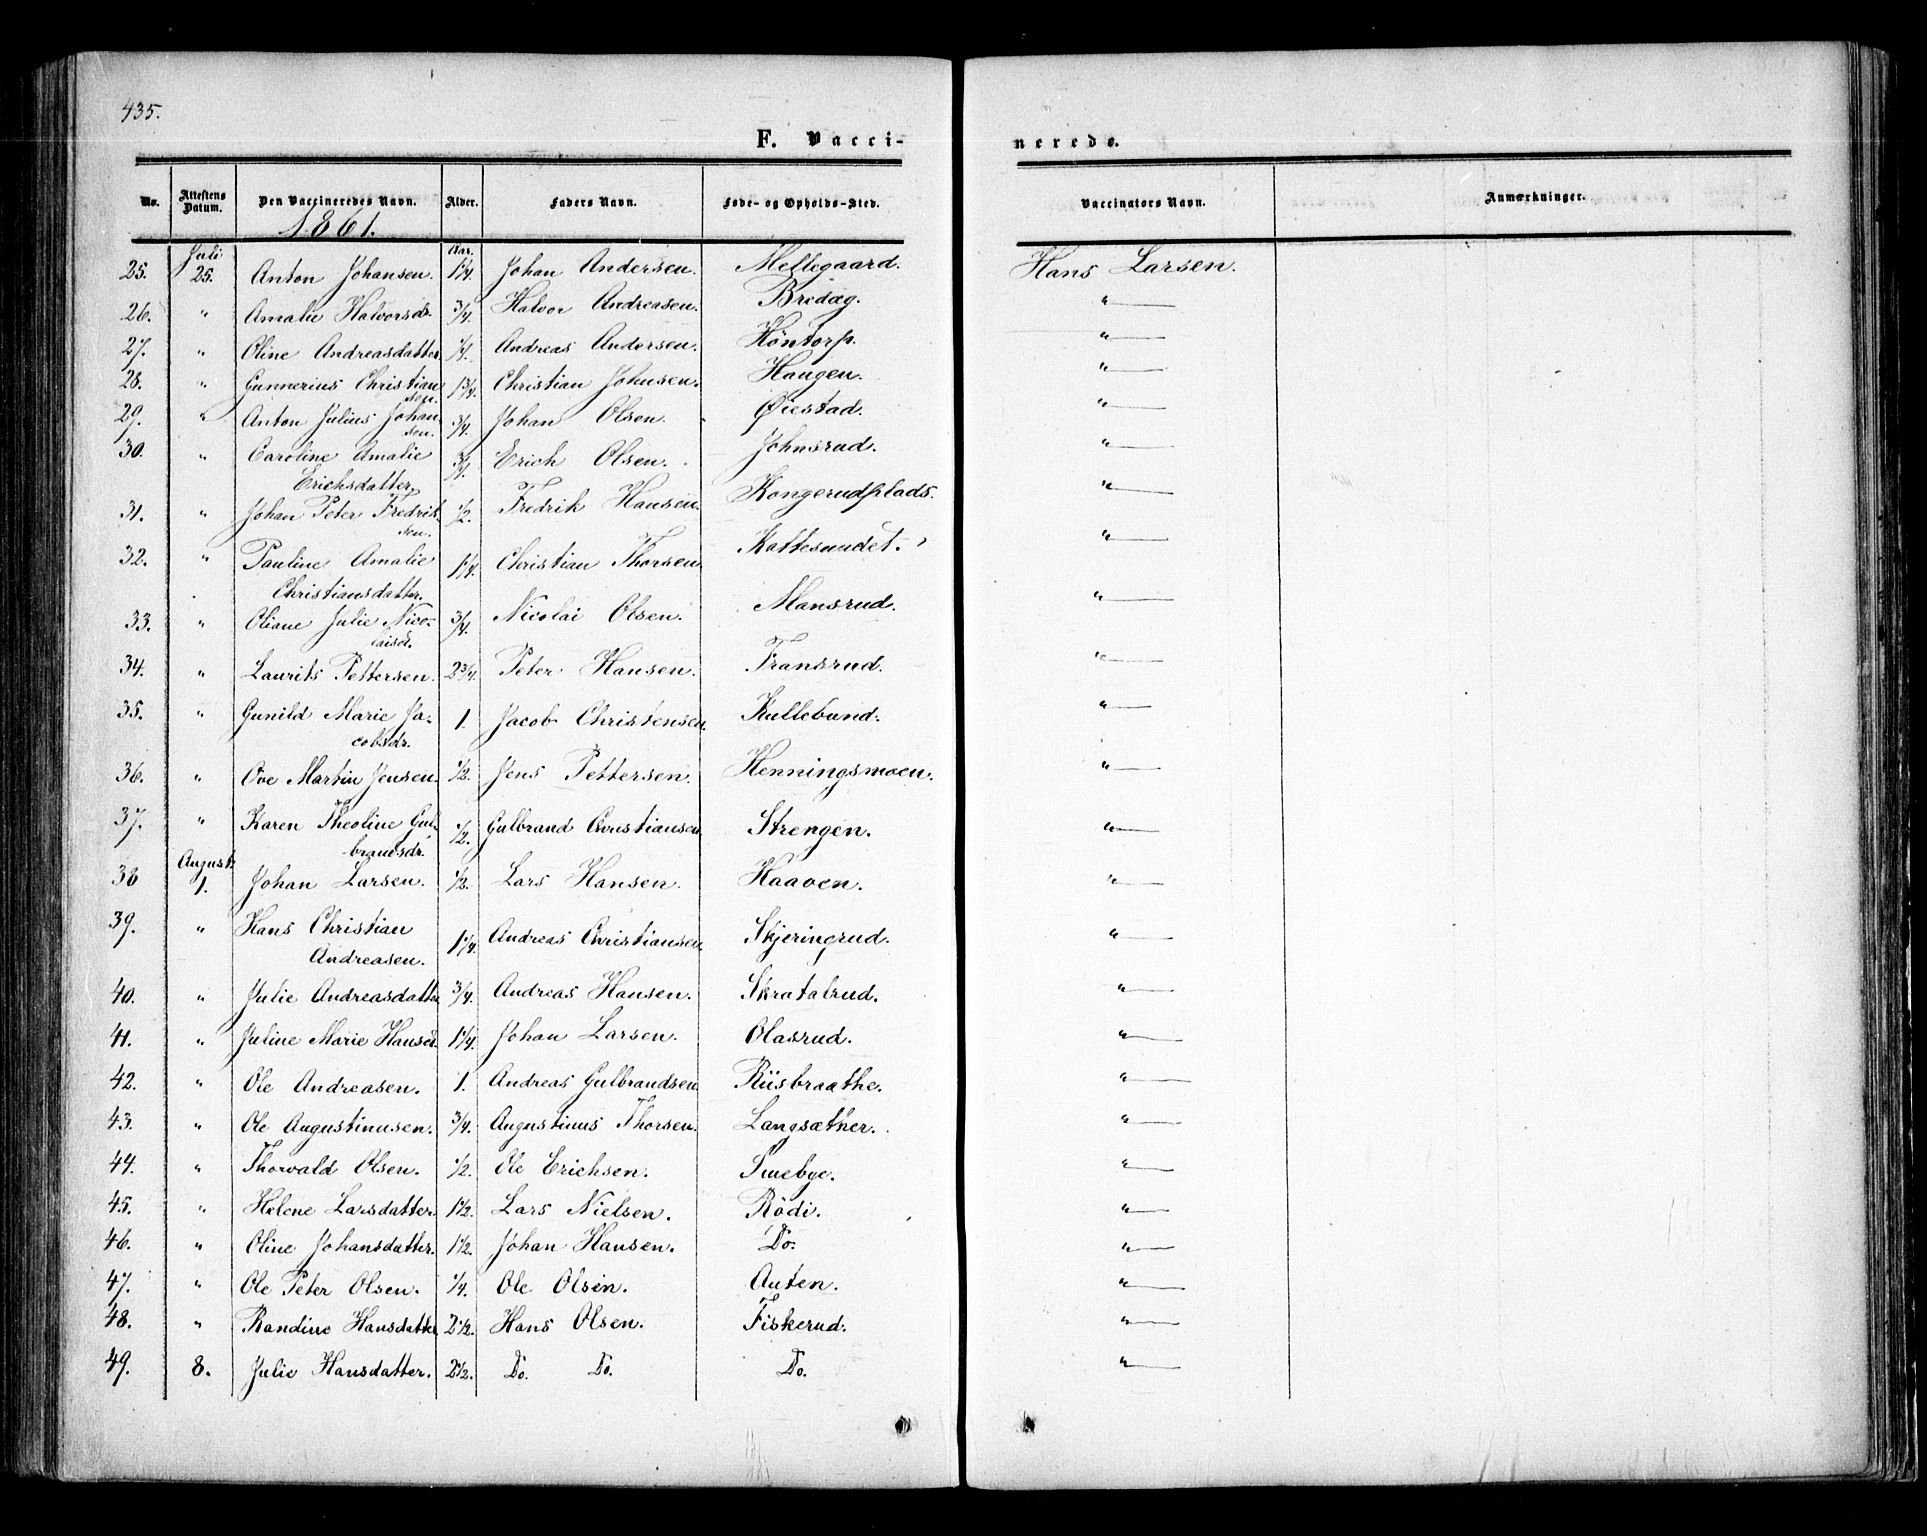 435.
F. Vacci-
nerede.
No. Attestens Datum. Den Vaccineredes Navn. Alder. Faders Navn. Føde- og Opholds-Sted. Vaccinators Navn. Anmærkninger.
1861.
Juli Aar.
25. 25. Anton Johansen. 1 1/4. Johan Andersen. Mellegaard. Hans Larsen.
26. " Amalie Halvorsdr. 3/4. Halvor Andreasen. Bredæg. "
27. " Oline Andreasdatter. 1/4. Andreas Andersen. Höntorp. "
28. " Gunnerius Christian
sen. 1 3/4. Christian Johnsen. Haugen. "
29. " Anton Julius Johan
sen. 3/4. Johan Olsen. Øiestad. "
30. " Caroline Amalie
Erichsdatter. 3/4. Erich Olsen. Johnsrud. "
31. " Johan Peter Fredrik
sen. 1/2. Fredrik Hansen. Kongerudplads. "
32. " Pauline Amalie
Christiansdatter. 1 1/4. Christian Thorsen Kattesundet. "
33. " Oliane Julie Nico-
laisd. 3/4. Nicolai Olsen. Mansrud. "
34. " Laurits Pettersen. 2 3/4. Peter Hansen. Transrud. "
35. " Gunild Marie Ja-
cobsdr. 1. Jacob Christensen. Kullebund. "
36. " Ove Martin Jensen. 1/2. Jens Pettersen. Henningsmoen. "
37. " Karen Theoline Gul-
brandsdr. 1/2. Gulbrand Christiansen Strengen. "
August
38 1. Johan Larsen. 1/2. Lars Hansen. Haaven. "
39. " Hans Christian
Andreasen. 1 1/4. Andreas Christiansen. Skjeringrud. "
40. " Julie Andreasdatter 3/4. Andreas Hansen. Skratalrud. "
41. " Juline Marie Hansd. 1 1/4. Johan Larsen. Olasrud. "
42. " Ole Andreasen. 1. Andreas Gulbrandsen Riisbraathe. "
43. " Ole Augustinusen. 3/4. Augustinus Thorsen. Langsæther. "
44. " Thorvald Olsen. 1/2. Ole Erichsen. Smebye. "
45. " Helene Larsdatter. 1 1/2. Lars Nielsen. Rödi. "
46. " Oline Johansdatter. 1 1/2. Johan Hansen. Do. "
47. " Ole Peter Olsen. 1/4. Ole Olsen. Auten. "
48. " Randine Hansdatter 2 1/2. Hans Olsen. Fiskerud. "
49. 8. Julie Hansdatter. 2 1/2. Do. Do. Do. "